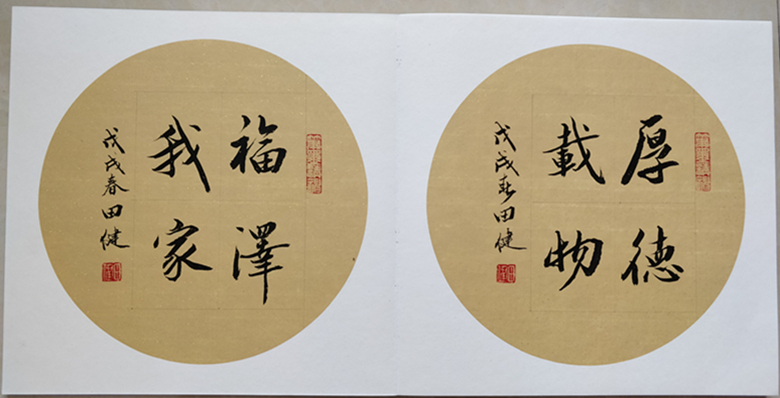 厚德
載物
戊戌春田健
福澤
我家
戊戌春田健